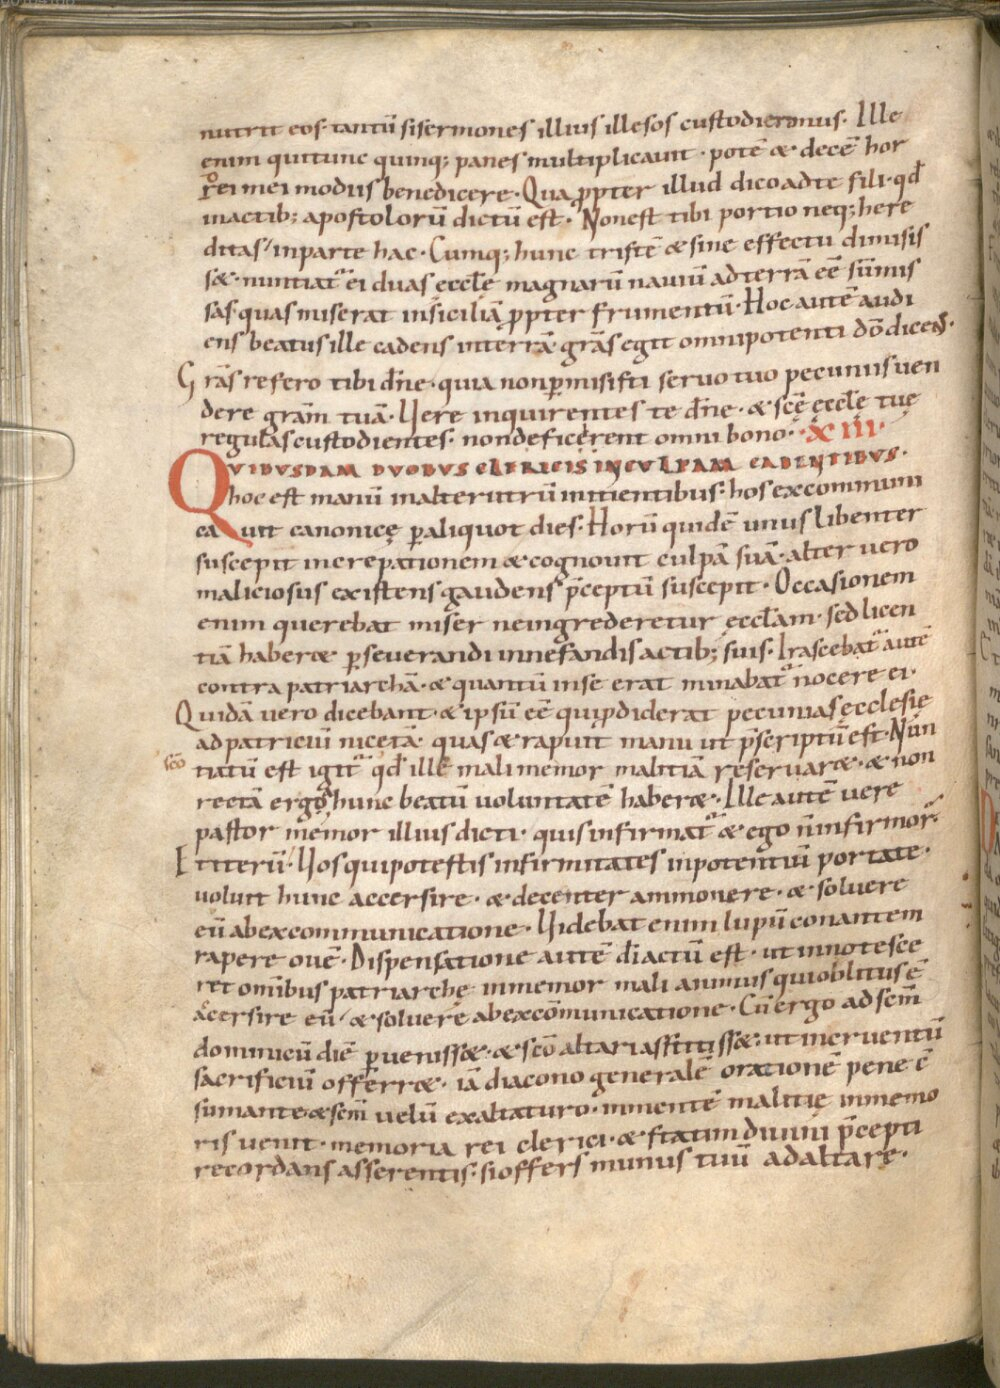 nutrit eos· tantũ si sermones illius illesos custodierimus· Ille
enim qui tunc quinq; panes multiplicauit· potẽ & decẽ hor
rei mei modiis benedicere· Qua ppter illud dico ad te fili· qđ
in actib; apostolorũ dictũ est· Non est tibi portio neq; here
ditas in parte hac· Cumq; hunc tristẽ & sine effectu dimisis
s&· nuntiat ei duas eccłe magnarũ nauiũ ad terrã eẽ sũmis
sas· quas miserat in siciliã ppter frumentũ· Hoc autẽ audi
ens beatus ille cadens in terrã· grãs egit omnipotenti dõ dicens·
Grãs refero tibi dñe· quia non pmisisti seruo tuo pecuniis uen
dere grãm tuã· Uere inquirentes te dñe· & scẽ eccłe tuę
regulas custodientes· non deficerent omni bono· XIII·
QVIBVSDAM DVOBVS CLERICIS IN CVLPAM CADENTIBVS·
hoc est manũ in alterutrũ mittientibus· hos excommuni
cauit canonicę p aliquot dies· Horũ quidẽ unus libenter
suscepit increpationem & cognouit culpã suã· alter uero
maliciosus existens gaudens pceptũ suscepit· Occasionem
enim querebat miser ne ingrederetur eccłam· sed licen
tiã haber& pseuerandi in nefandis actib; suis· Irascebat autẽ
contra patriarchã· & quantũ in se erat minabat nocere ei·
Quidã uero dicebant· & ipsũ eẽ qui pdiderat pecunias ecclesię
ad patriciũ nicetã· quas & rapuit manu ut pscriptũ est· Nun
tiatũ est igit scõ qđ ille mali memor malitiã reseruar&· & non
rectã ergo hunc beatũ uoluntatẽ haber&· Ille autẽ uere
pastor memor illius dicti· quis infirmat & ego ñ infirmor·
Et iterũ· Uos qui potestis infirmitates inpotentiũ portate·
uoluit hunc accersire· & decenter ammonere· & soluere
eũ ab excommunicatione· Uidebat enim lupũ conantem
rapere ouẽ· Dispensatione autẽ di actũ est· ut innotesce
ret omibus patriarchę inmemor mali animus qui oblitus ẽ
accersire eũ & soluere ab excõmunicatione· Cũ ergo ad scm̃
dominicũ diẽ puenisse&· & scõ altari asstitiss&· ut incruentũ
sacrificiũ offerr&· iã diacono generalẽ orationẽ pene ẽ
sumante· & scm̃ uelũ exaltaturo· in mentẽ malitię inmemo
ris uenit· memoria rei clerici· & statim diuini pcepti
recordans asserentis· si offers munus tuũ ad altare·